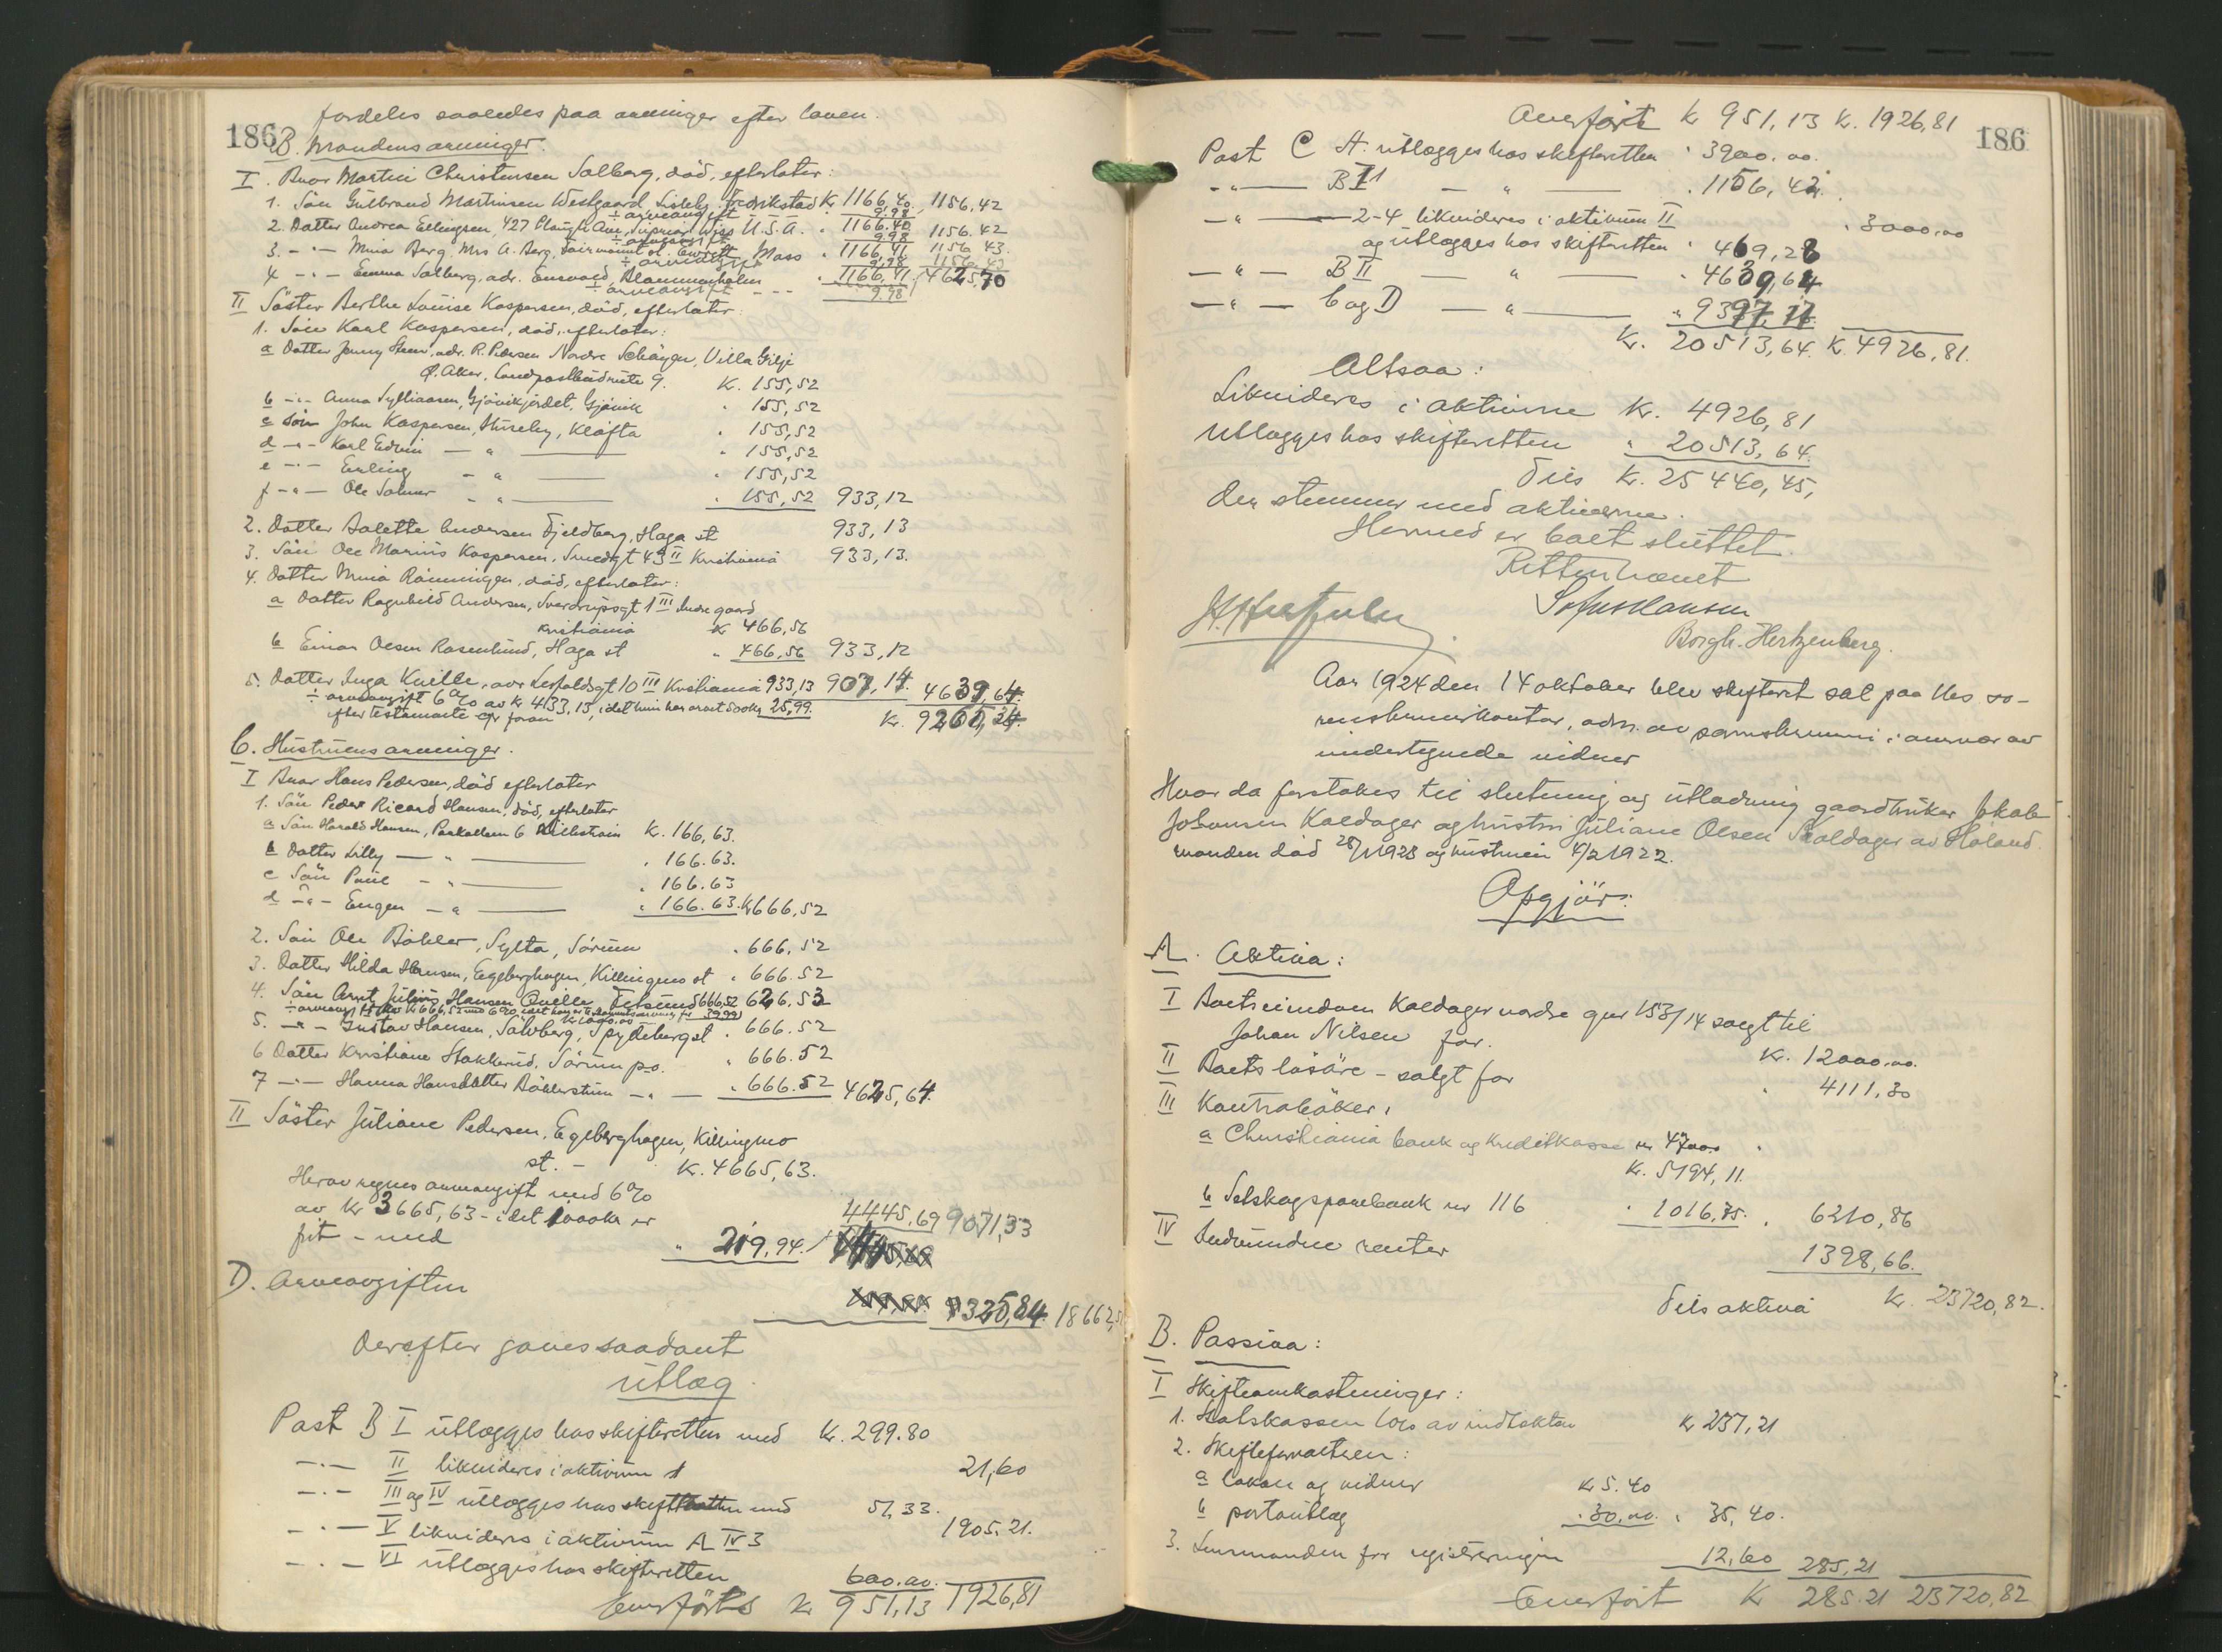 186
fordeles saaledes paa arvinger efter loven.
B. Mandens arvinger.
I. Bror Martin Christensen Solberg, död, efterlater:
1. Sön Gulbrand Martinsen Westgaard Lisleby Fredrikstad K 1166,40 1156,42
÷ arveavgift 9.98
2. Datter Andrea Ellingsen, 427 Ave, Superior Wiss U.S.A. " 1166.40 1156.42
÷ arveavgift 9.98
3. -"- Mina Berg, Mrs A. Berg, Fairmount st. Mass " 1166,41 1156 43.
÷ arveavgift 9.98 1156,43
4 -"- Emma Solberg, adr. " 1166,41 4625,70
÷ arveavgift --- 9.98
II Söster Berthe Louise Kaspersen, död, efterlater:
1. Sön Karl Kaspersen, död, efterlater:
a Datter Jenny Steen, adr. R. Pedersen Nordre Schöyen, Villa Gilje
Ø. Aker, Landpostbudrute 9. K. 155,52
b -"- Anna Sylliaasen, Gjövikjordet, Gjövik " 155,52
c Sön John Kaspersen, Huseby, Klöfta " 155,52
d -"- Karl Edvin -"- " 155,52
e -"- Erling -"- " 155,52
f -"- Ole -"- " 155,52 933,12
2. Datter Andersen Fjeldberg, Haga st 933,13
3. Sön Ole Marius Kaspersen, Smedgt 43 II Kristiania 933,13.
4. Datter Mina Rönningen, död, efterlater:
a Datter Ragnhild Andersen, Sverdrupsgt 1 III indre gaard
Kristiania K 466,56
b Einar Olsen Rosenlund, Haga st " 466,56 933,12
5. Datter Inga Kville, adr Leopoldsgt 10 III Kristiania 933,13 907,14. 4639,64.
÷ arveavgift 6% av kr 433.13, idet hun har arvet 500 kr 25,99.
efter testamente cfr foran K. 9265,34.
C. Hustruens arvinger.
I Bror Hans Pedersen, död efterlater
1. Sön Peder Ricard Hansen, död, efterlater
a Sön Harald Hansen, Parkalleen 6 Lilleström K. 166,63.
b Datter Lilly -"- " 166.63.
c Sön Paul -"- " 166.63
d -"- Eugen -"- " 166.63. K 666,52
2. Sön Ole Böhler, Sylta, Sörum " 666,52
3. Datter Hilda Hansen, Egeberghagen, Killingmo st " 666.52
4. Sön Arnt Julius Hansen Kville, Fetsund 666,52 626,53
5. -"- Gustav Hansen, Solberg, Spydeberg st " 666.52
6 Datter Kristiane Stakkerud, Sörum p.o. " 666.52
7 -"- Hanna Hansdatter -"- " 666.52 4625,64.
II Söster Juliane Pedersen, Egeberghagen, Killingmo
st. - K. 4665,63.
Herav regnes arveavgift med 6%
av kr 3665,63 - idet 1000 kr er
frit - med " 219,94. 4445,69 9071,33
D. Arveavgiften
9325,84 18662,5
Derefter gives saadant
utlæg.
Post B I utlægges hos skifteretten med K. 299.80
-"- II likvideres i aktivum 1 21,60
-"- III og IV utlægges hos skifteretten med 51,33.
-"- V likvideres i aktivum A IV 3 1905.21.
-"- VI utlægges hos skifteretten 600.00.
Overföres K 951,13 1926,81
186
Overfört K 951,13 K. 1926,81
Post C A. utlægges hos skifteretten " 3900.00.
-"- B I 1 -"- " 1156,42.
-"- 2-4 likvideres i aktivum II " 3000,00
og utlægges hos skifteretten " 469,28
-"- B II -"- " 4639,64
-"- C og D -"- " 9397,17
K. 20513,64. K. 4926,81.
Altsaa:
Likvideres i aktivine K. 4926,81
Utlægges hos skifteretten " 20513,64.
Tils K. 25440,45,
der stemmer med aktiverne.
Hermed er boet sluttet.
Retten hævet
Sofus Hansen
Borgh. Hertzenberg.
Aar 1924 den 14 oktober blev skifteret sat paa Nes so-
renskriverkontor, adm. av sorenskriveren i overvær av
undertegnede vidner
Hvor da foretokes til slutning og utlodning gaardbruker Jakob
Johansen Kaldager og hustru Juliane Olsen Kaldager av Höland.
manden död 28/1 1923 og hustruen 4/2 1922.
Opgjör:
A. Aktiva:
I Boets eiendom Kaldager nordre gnr 153/14 solgt til
Johan Nilsen for. K. 12000.00.
II Boets lösöre - solgt for " 4111,30
III Kontraböker:
a Christiania bank og Kreditkasse nr 47000
K. 5194,11.
b Setskog sparebank nr 116 " 1016,75. " 6210,86
IV Indvundne renter 1398,66.
Tils aktiva K. 23720,82.
B. Passiva:
I Skifteomkostninger:
1. Statskassen 1% av indtekten K 237,21
2. Skifteforvalteren:
a lokale og vidner K 5.40
b portoutlæg " 30.00. " 35,40.
3. Lensmanden for registreringen 12,60 285,21
Overfört K 285.21 23720,82